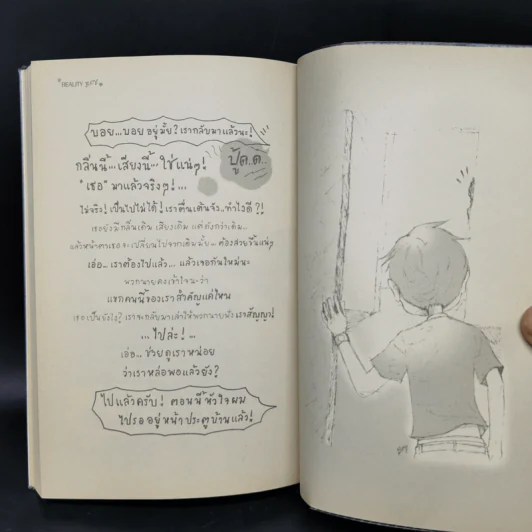 "REALITY BOY"
บอย...บอย อยู่มั้ย? เรากลับมาแล้วนะ!
ปู้ด.ด..
กลิ่นนี้...เสียงนี้...ใช่แน่ๆ!
"เธอ" มาแล้วจริงๆ!...
ไม่จริง! เป็นไปไม่ได้! เราตื่นเต้นจัง..ทำไงดี?!
เธอยังมีกลิ่นเดิม เสียงเดิม แต่ดังกว่าเดิม...
แล้วหน้าตาเธอจะเปลี่ยนไปจากเดิมมั้ย... ต้องสวยขึ้นแน่ๆ
เอ่อ.. เราต้องไปแล้ว... แล้วเจอกันใหม่นะ
พวกนายคงเข้าใจนะว่า
แขกคนนี้ของเราสำคัญแค่ไหน
เธอเป็นยังไง? เราจะกลับมาเล่าให้พวกนายฟัง เราสัญญา!
... ไปล่ะ! ...
เอ่อ.. ช่วยดูเราหน่อย
ว่าเราหล่อพอแล้วยัง?
ไปแล้วครับ! ตอนนี้หัวใจผม
ไปรออยู่หน้าประตูบ้านแล้ว!